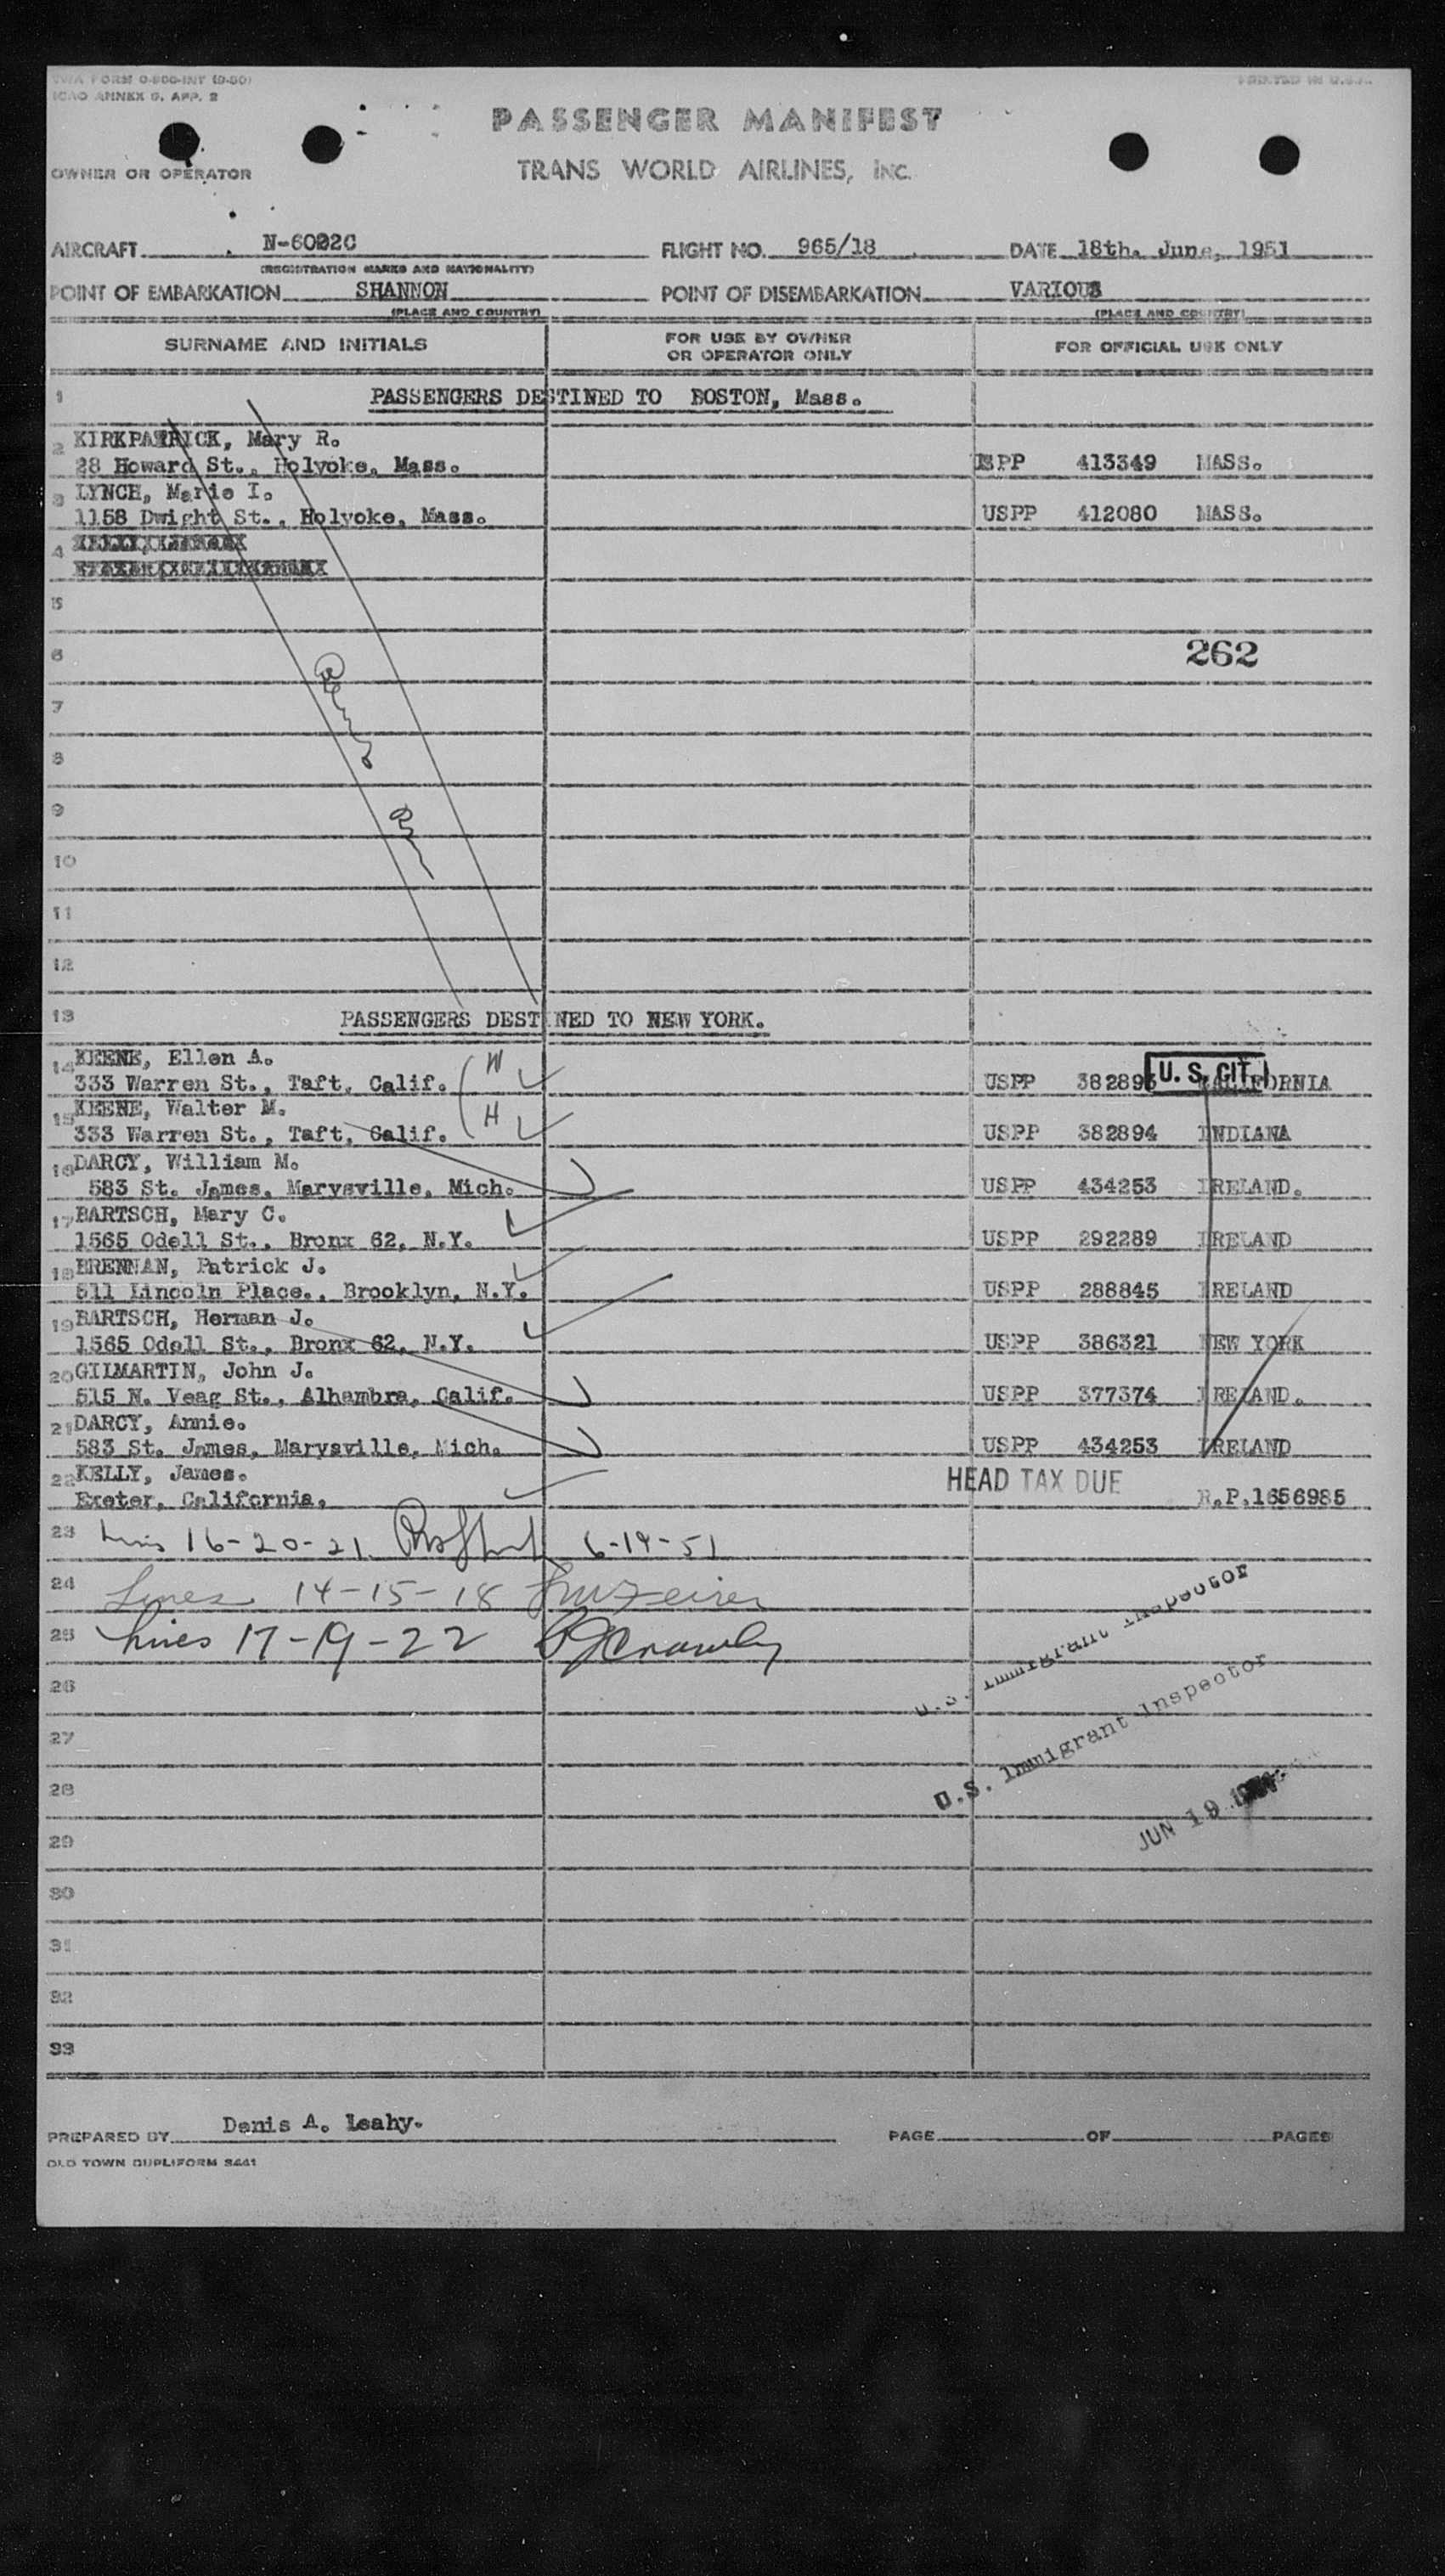 TWA FORM 0-800-INT
ICAO ANNEX 9, APP. 2
PRINTED IN U.S.A.
PASSENGER MANIFEST
OWNER OR OPERATOR
TRANS WORLD AIRLINES, INC.
AIRCRAFT N-6002C FLIGHT NO. 965/18 DATE 18th. June, 1951
(REGISTRATION MARKS AND NATIONALITY)
POINT OF EMBARKATION SHANNON POINT OF DISEMBARKATION VARIOUS
(PLACE AND COUNTRY) (PLACE AND COUNTRY)
SURNAME AND INITIALS FOR USE BY OWNER OR OPERATOR ONLY FOR OFFICIAL USE ONLY
1 PASSENGERS DESTINED TO BOSTON, Mass.
2 KIRKPATRICK, Mary R.
28 Howard St., Holyoke, Mass. USPP 413349 MASS.
3 LYNCH, Marie I.
1158 Dwight St., Holyoke, Mass. USPP 412080 MASS.
4
5
6 262
7
8
9
10
11
12
13 PASSENGERS DESTINED TO NEW YORK.
14 KEENE, Ellen A. W
333 Warren St., Taft, Calif. USPP 382893 U.S. CIT. CALIFORNIA
15 KEENE, Walter M. H
333 Warren St., Taft, Calif. USPP 382894 INDIANA
16 DARCY, William M.
583 St. James, Marysville, Mich. USPP 434253 IRELAND.
17 BARTSCH, Mary C.
1565 Odell St., Bronx 62, N.Y. USPP 292289 IRELAND
18 BRENNAN, Patrick J.
511 Lincoln Place., Brooklyn, N.Y. USPP 288845 IRELAND
19 BARTSCH, Herman J.
1565 Odell St., Bronx 62, N.Y. USPP 386321 NEW YORK
20 GILMARTIN, John J.
515 N. Veag St., Alhambra, Calif. USPP 377374 IRELAND.
21 DARCY, Annie.
583 St. James, Marysville, Mich. USPP 434253 IRELAND
22 KELLY, James. HEAD TAX DUE
Exeter, California. R.P.1656985
23 16-20-21 6-19-51
24 Lines 14-15-18
25 Lines 17-19-22
U.S. Immigrant Inspector
26
27
U.S. Immigrant Inspector
28
JUN 19
29
30
31
32
33
PREPARED BY Denis A. Leahy. PAGE OF PAGES
OLD TOWN DUPLIFORM 3441